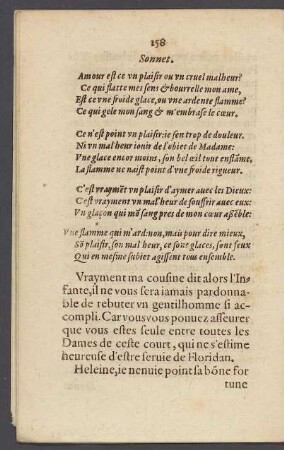 158
Sonnet.
Amour est ce vn plaisir ou vn cruel malheur?
Ce qui flatte mes sens & bourrelle mon ame,
Est ce vne froide glace, ou vne ardente flamme?
Ce qui gele mon sang & m'embrase le cœur.
Ce n'est point vn plaisir: ie sen trop de douleur.
Ni vn malheur iouir de l'obiet de Madame:
Vne glace encor moins, son bel œil tout enflãme,
La flamme ne naist point d'vne froide rigueur.
C'est vraymẽt vn plaisir d'aymer auec les Dieux:
C'est vrayment vn malheur de souffrir auec eux:
Vn glaçon qui mõ sang pres de mon cœur assẽble:
Vne flamme qui m'ard: non, mais pour dire mieux,
Sõ plaisir, son malheur, ce sont glaces, sont feux
Qui en mesme subiet agissent tous ensemble.
Vrayment ma cousine dit alors l'In-
fante, il ne vous sera iamais pardonna-
ble de rebuter vn gentilhomme si ac-
compli. Car vous vous pouuez asseurer
que vous estes seule entre toutes les
Dames de ceste court, qui ne s'estime
heureuse d'estre seruie de Floridan.
Heleine, ie n'enuie point sa bõne for
tune